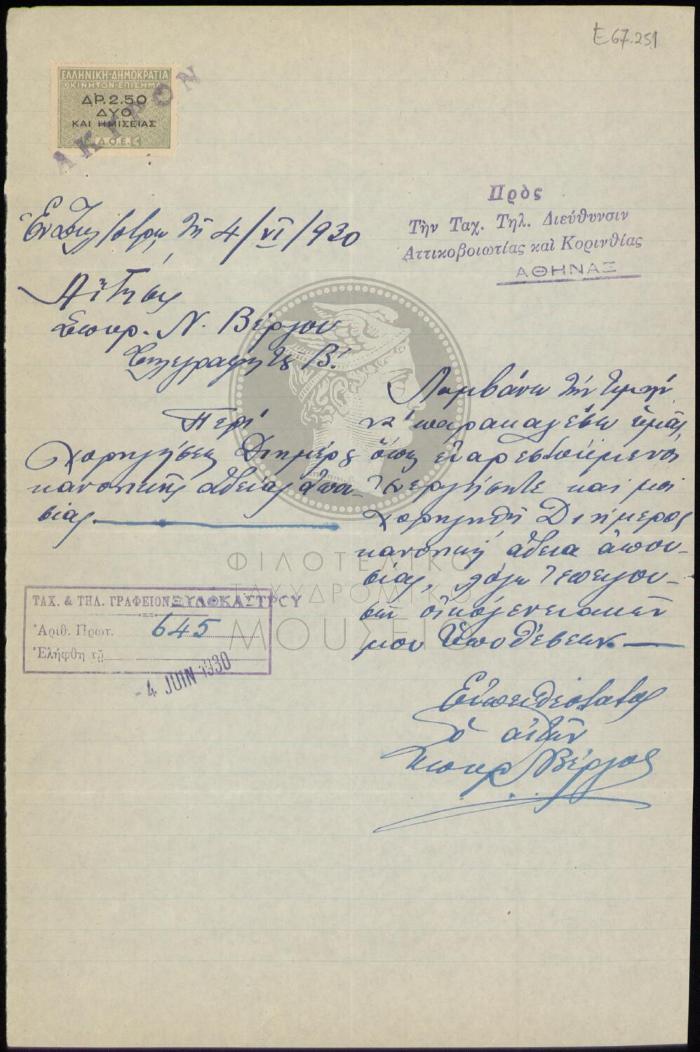 Ε67.251
ΕΛΛΗΝΙΚΗ ΔΗΜΟΚΡΑΤΙΑ
ΚΙΝΗΤΟΝ ΕΠΙΣΗΜΑ
ΔΡ. 2.50
ΔΥΟ
ΚΑΙ ΗΜΙΣΕΙΑΣ
Δ.Ο.Ε.
ΑΚΥΡΟΝ
Πρὸς
Τὴν Ταχ. Τηλ. Διεύθυνσιν
Ἀττικοβοιωτίας καὶ Κορινθίας
ΑΘΗΝΑΣ
Ἐν τῇ 4/VI/930
Αἴτησις
Σπυρ. Ν. Βέργου
Τηλεγραφητοῦ Β'.
Περὶ
χορηγήσεως διημέρου
κανονικῆς ἀδείας ἀπου-
σίας
Λαμβάνω τὴν τιμὴν
νὰ παρακαλέσω ὑμᾶς
ὅπως εὐαρεστούμενοι
καὶ μοὶ
χορηγηθῇ διήμερος
κανονικὴ ἄδεια ἀπου-
σίας λόγῳ ἐπειγου-
σῶν οἰκογενειακῶν
μου ὑποθέσεων
Εὐπειθέστατος
ὁ αἰτῶν
Σπυρ Ν Βέργος
ΤΑΧ. & ΤΗΛ. ΓΡΑΦΕΙΟΝ ΞΥΛΟΚΑΣΤΡΟΥ
Ἀριθ. Πρωτ. 645
Ἐλήφθη τῇ
- 4 JUIN 1930
ΦΙΛΟΤΕΛΙΚΟ
ΤΑΧΥΔΡΟΜΙΚΟ
ΜΟΥΣΕΙΟ